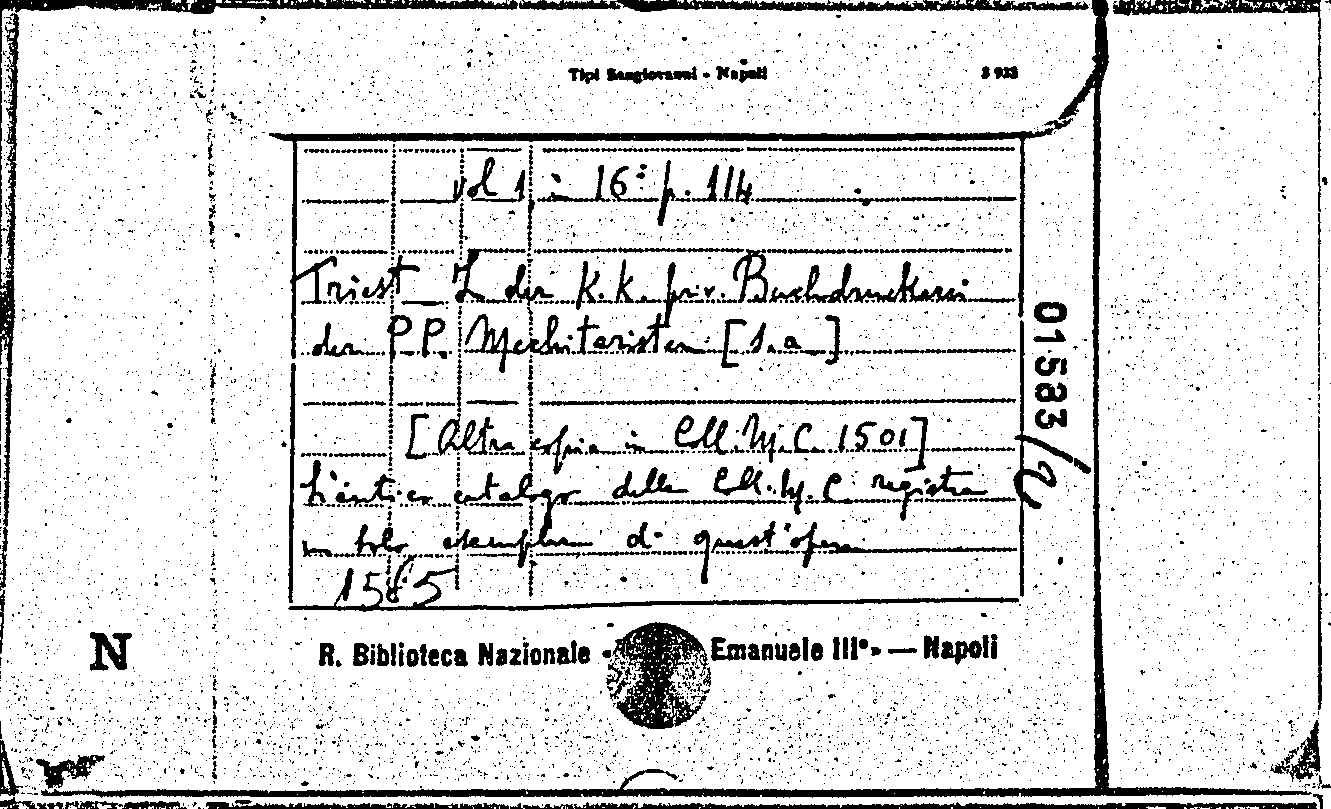 Tipi Sangiovanni - Napoli
vol 1 in 16º p. 114
Triest der K. K. priv. Buchdruckerei
der P.P. Mechitaristen [s.a.]
[Altra copia in Coll. M. C. 1501]
L'antico catalogo della Coll. M. C. registra
un solo esemplare di quest'opera
01583/a
N
R. Biblioteca Nazionale Emanuele IIIº» — Napoli